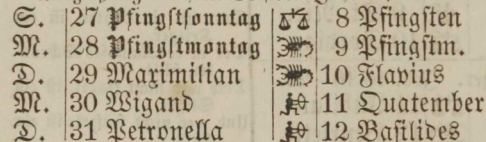 S. 27 Pfingſtſonntag ♎ 8 Pfingſten
M. 28 Pfingſtmontag ♏ 9 Pfingſtm.
D. 29 Maximilian ♏ 10 Flavius
M. 30 Wigand ♐ 11 Quatember
D. 31 Petronella ♐ 12 Baſilides